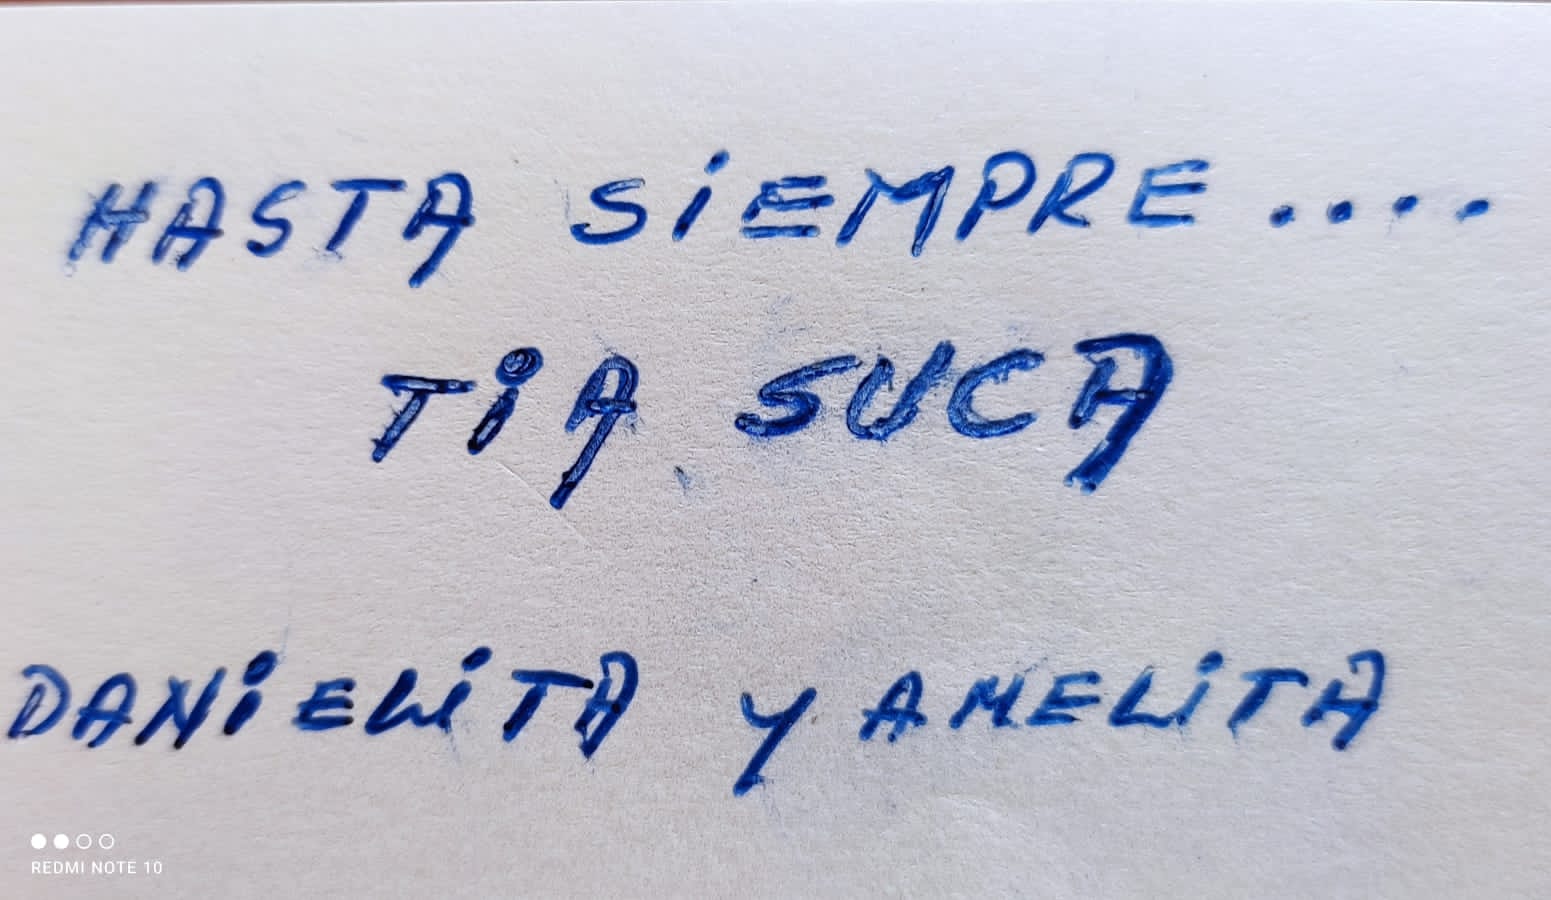 HASTA SiEMPRE ....
TiA SUCA
DANiELiTA Y AMELiTA
REDMI NOTE 10